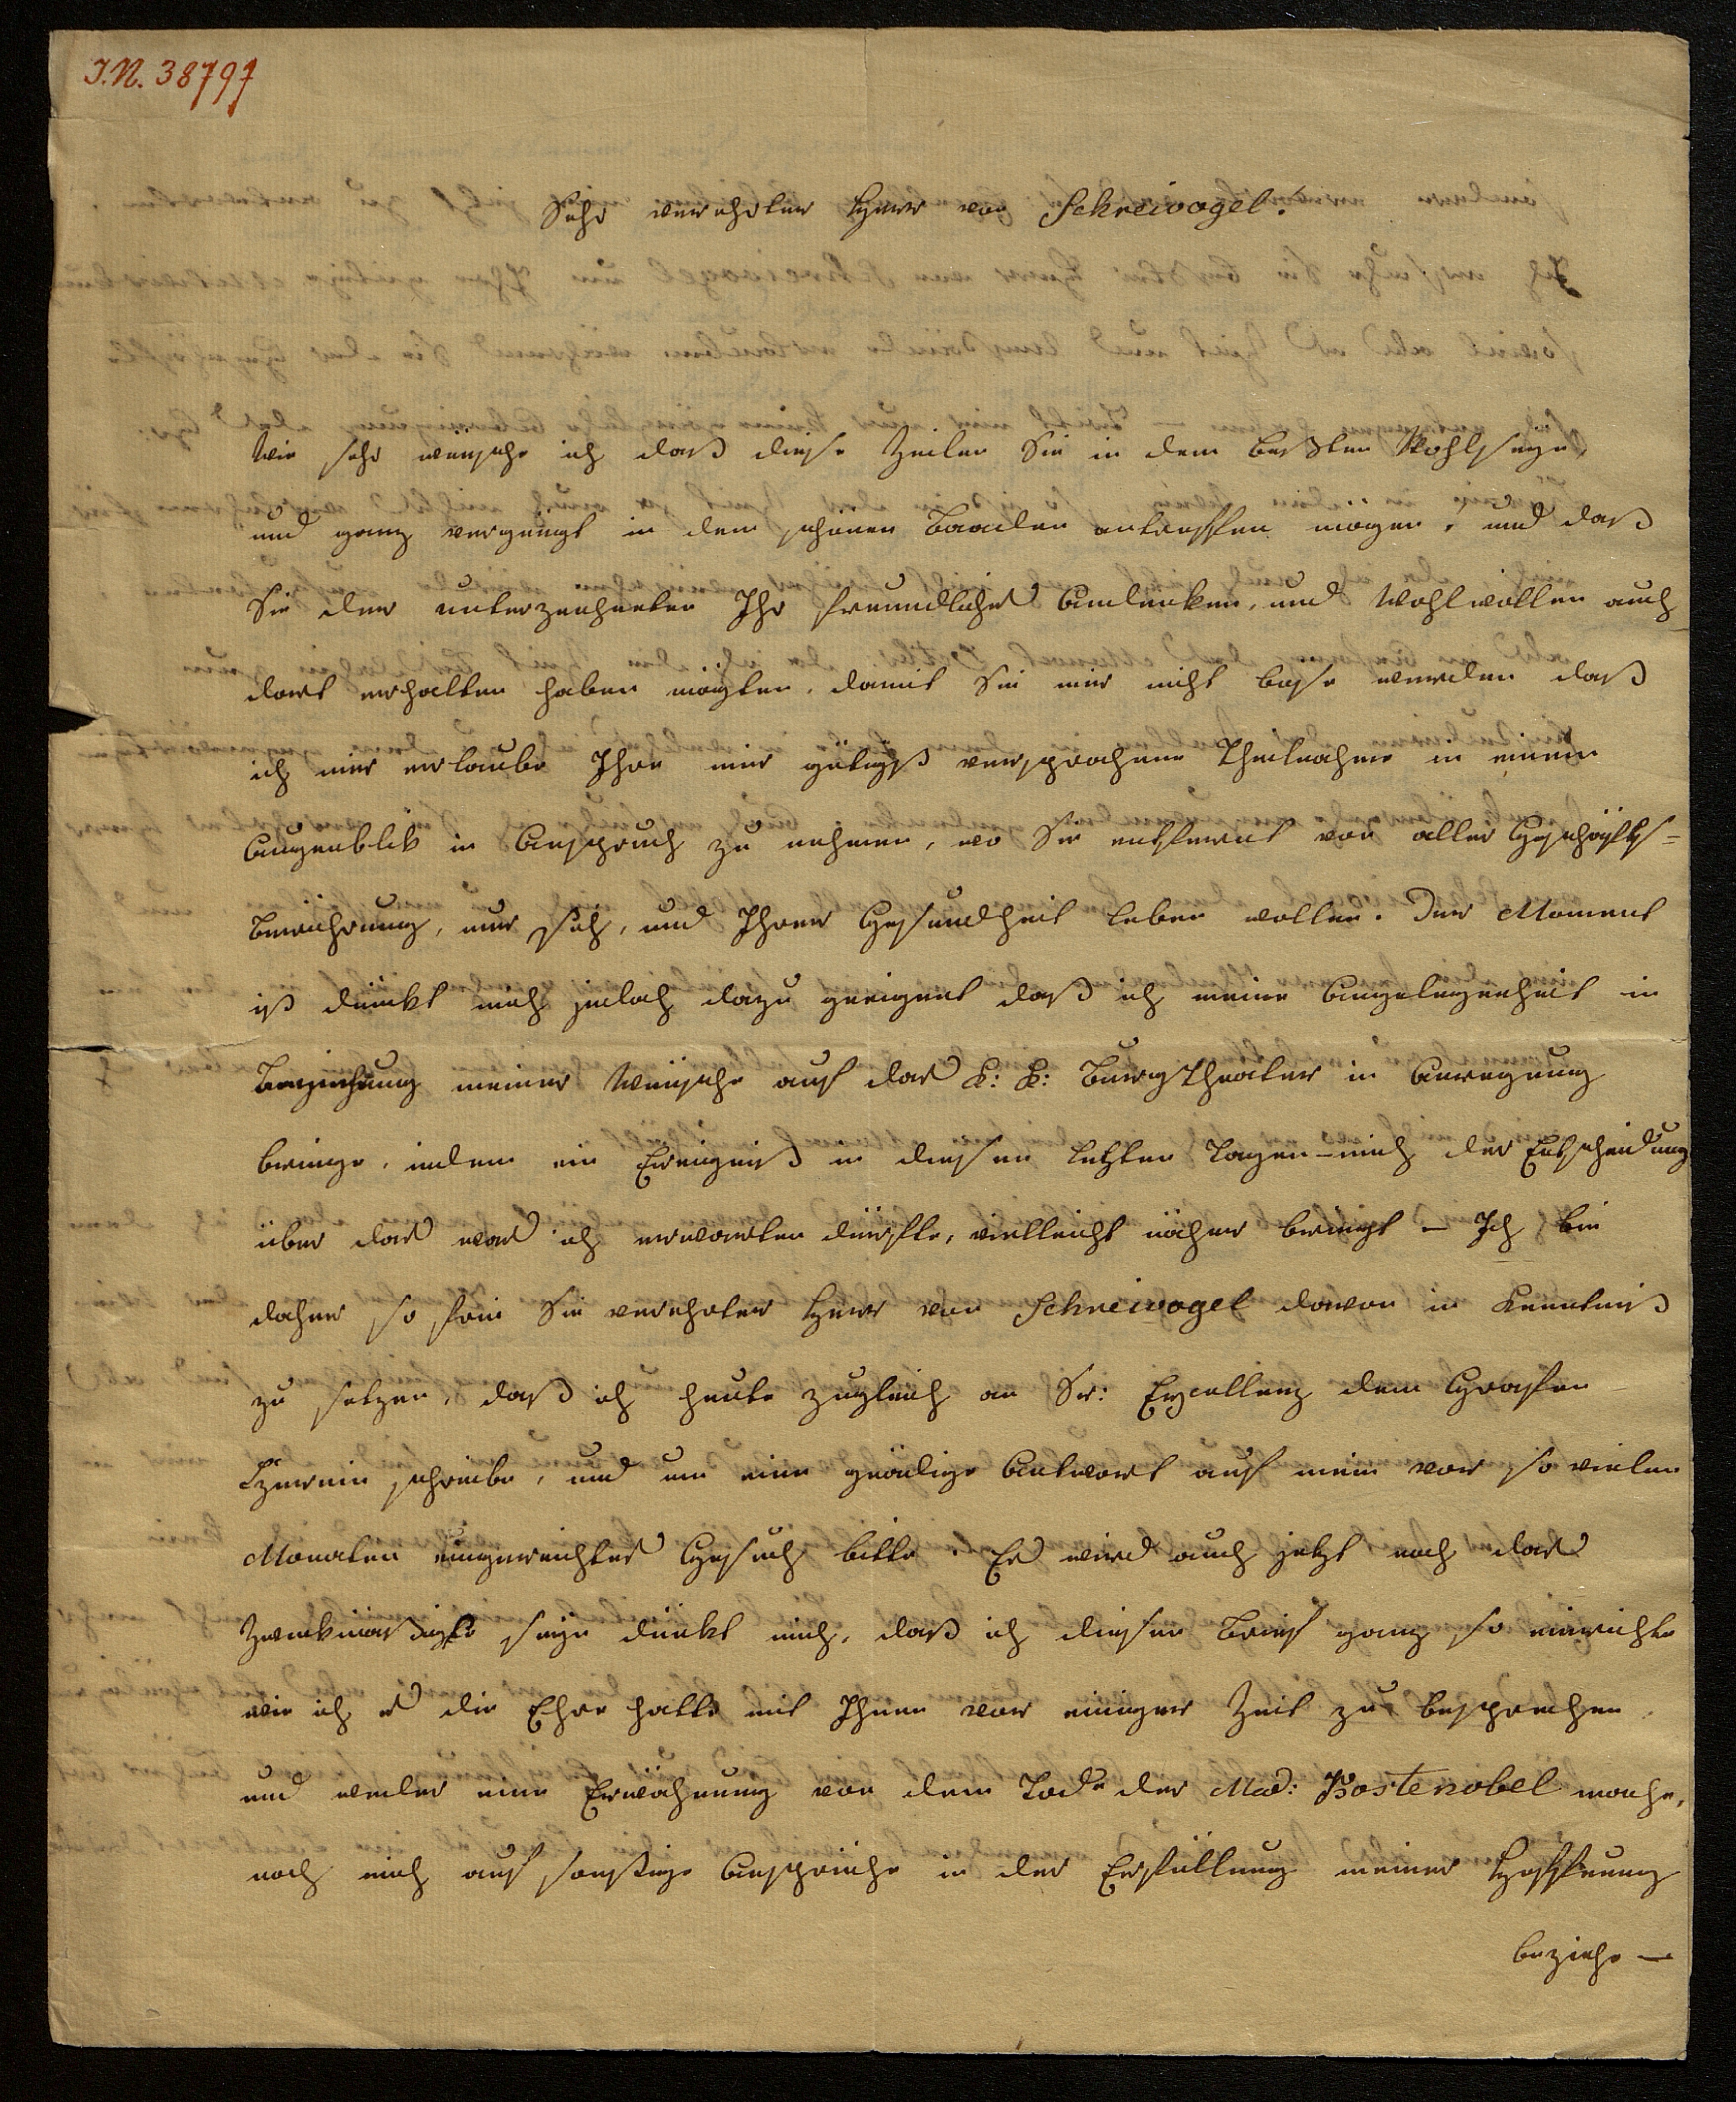 J.N. 38797
Sehr verehrter Herr von Schreivogel!
Wie sehr wünsche ich daß diese Zeilen Sie in dem beßten Wohlseyn,
und ganz vergnügt in dem schönen Baaden antreffen mögen, und daß
Sie der unterzeichneten Ihr freundliches Andenken, und Wohlwollen auch
dort erhalten haben mögten, damit Sie mir nicht böse werden daß
ich mir erlaube Ihre mir gütigst versprochene Theilnahme in einem
Augenblik in Anspruch zu nehmen, wo Sie entfernt von aller Geschäfts-
Berührung, nur sich, und Ihrer Gesundheit leben wollen. Der Moment
ist dünkt mich jedoch dazu geeignet daß ich meine Angelegenheit in
Beziehung meiner Wünsche auf das k: k: Burgtheater in Anregung
bringe, indem ein Ereigniß in diesen letzten Tagen – mich der Entscheidung
über das was ich erwarten dürfte, vielleicht näher bringt – Ich bin
daher so frei Sie verehrter Herr von Schreivogel davon in Kenntniß
zu setzen, daß ich heute zugleich an Sr: Exzellenz dem Grafen
Czernin schreibe, und um eine gnädige Antwort auf mein vor so vielen
Monaten eingereichtes Gesuch bitte. Es wird auch jetzt noch das
Zweckmäßigste seyn dünkt mich, daß ich diesen Brief ganz so einrichte
wie ich es die Ehre hatte mit Ihnen vor einiger Zeit zu besprechen,
und weder eine Erwähnung von dem Tode der Mad: Kostenobel mache,
noch mich auf sonstige Ansprüche in der Erfüllung meiner Hoffnung
beziehe –